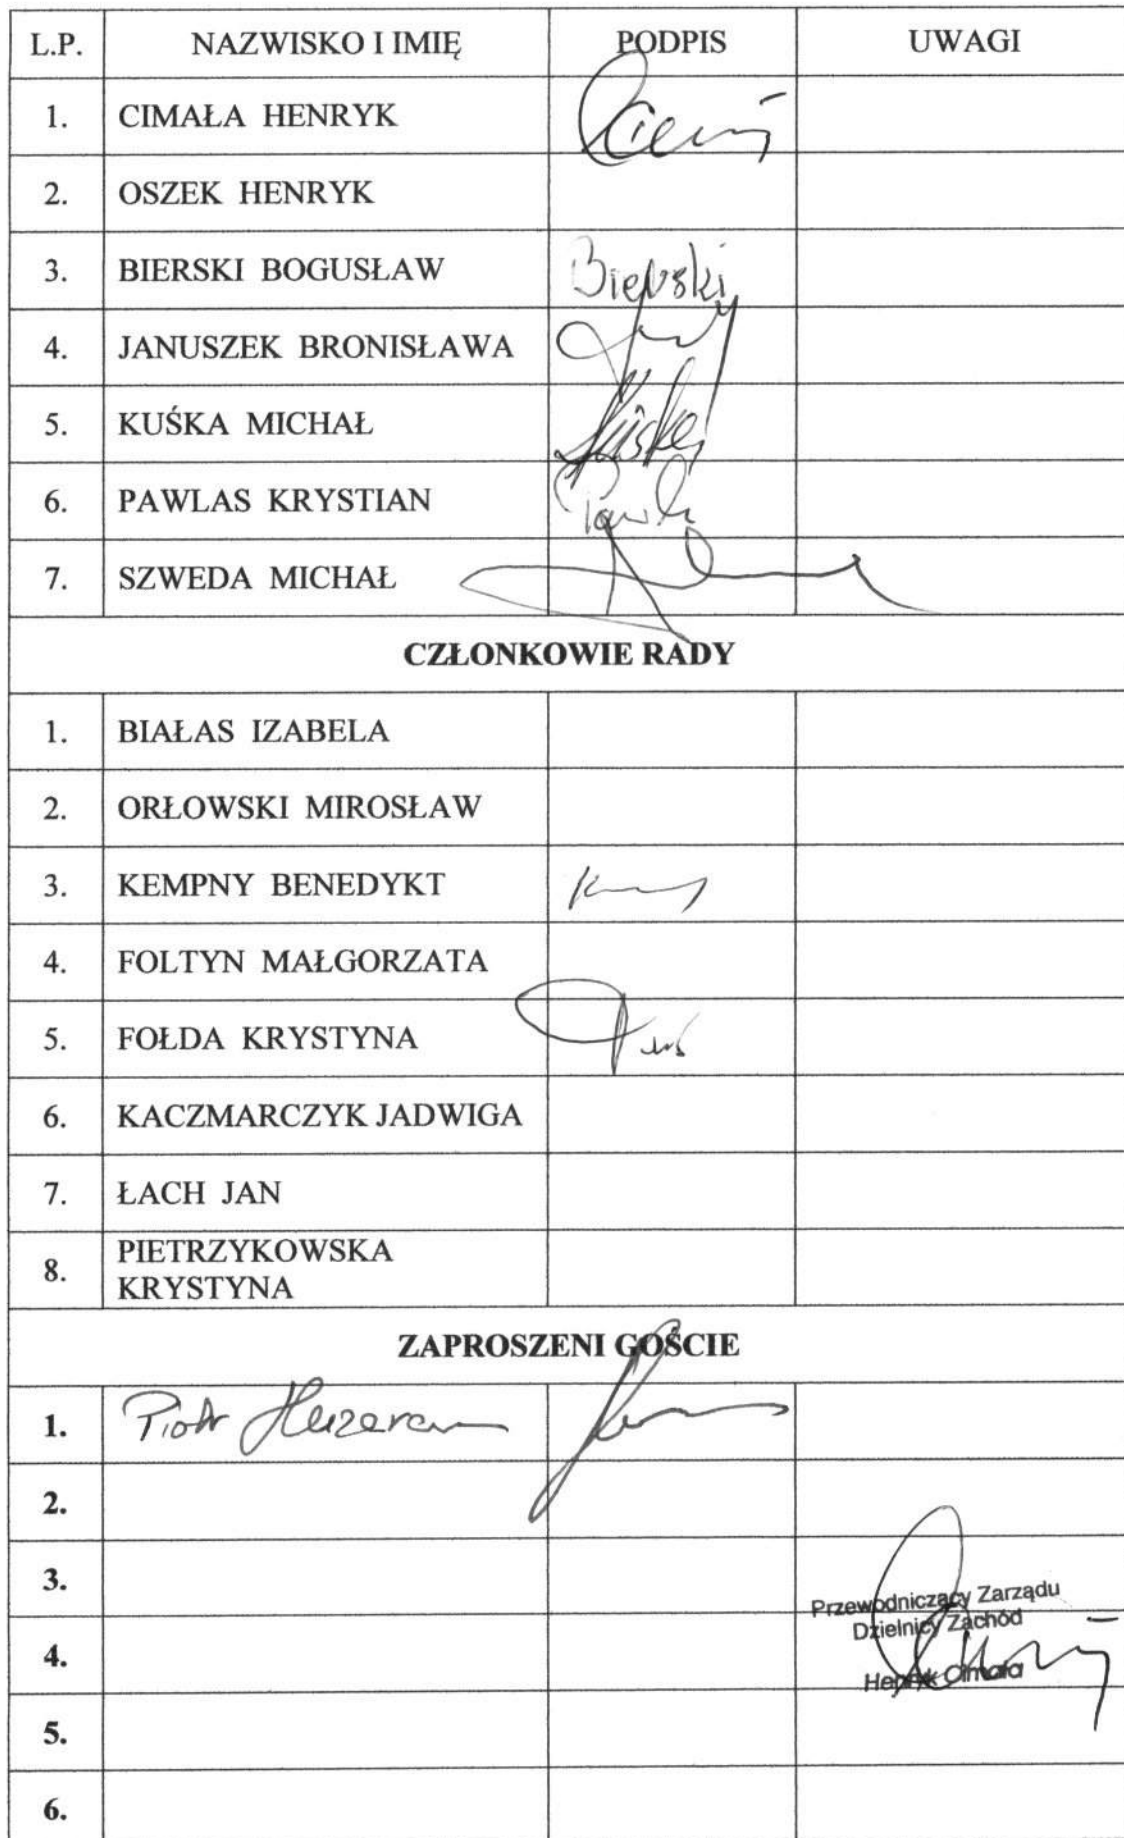 L.P. NAZWISKO I IMIĘ PODPIS UWAGI
1. CIMAŁA HENRYK
2. OSZEK HENRYK
3. BIERSKI BOGUSŁAW Bierski
4. JANUSZEK BRONISŁAWA
5. KUŚKA MICHAŁ
6. PAWLAS KRYSTIAN
7. SZWEDA MICHAŁ
CZŁONKOWIE RADY
1. BIAŁAS IZABELA
2. ORŁOWSKI MIROSŁAW
3. KEMPNY BENEDYKT
4. FOLTYN MAŁGORZATA
5. FOŁDA KRYSTYNA
6. KACZMARCZYK JADWIGA
7. ŁACH JAN
8. PIETRZYKOWSKA
KRYSTYNA
ZAPROSZENI GOŚCIE
1. Piotr
2.
3.
Przewodniczący Zarządu
Dzielnicy Zachód
4.
Henryk Cimała
5.
6.